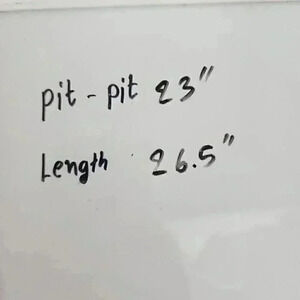 pit - pit 23"
Length 26.5"